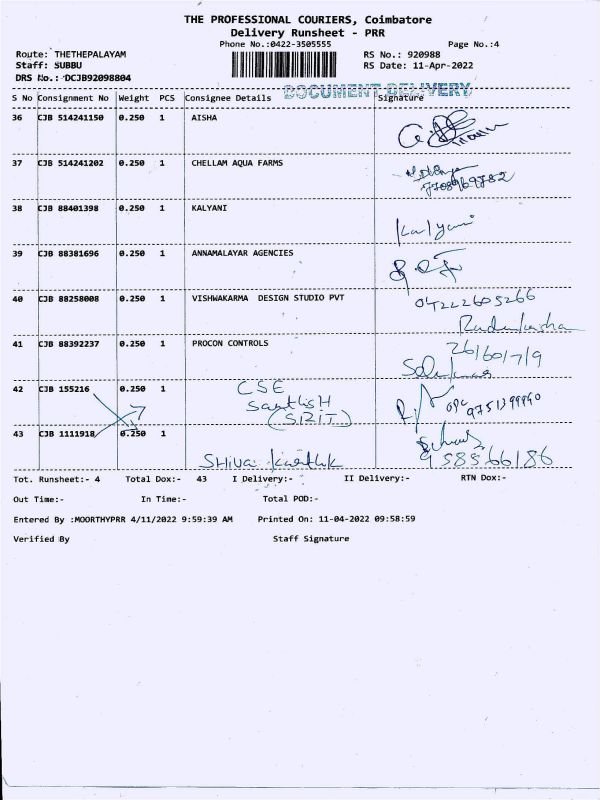 THE PROFESSIONAL COURIERS, Coimbatore
Delivery Runsheet - PRR
Phone No.:0422-3505555 Page No.:4
Route: THETHEPALAYAM RS No.: 920988
Staff: SUBBU RS Date: 11-Apr-2022
DRS No.: DCJB92098804
DOCUMENT DELIVERY
S No Consignment No Weight PCS Consignee Details Signature
36 CJB 514241150 0.250 1 AISHA
37 CJB 514241202 0.250 1 CHELLAM AQUA FARMS
38 CJB 88401398 0.250 1 KALYANI Kalyani
39 CJB 88381696 0.250 1 ANNAMALAYAR AGENCIES
40 CJB 88258008 0.250 1 VISHWAKARMA DESIGN STUDIO PVT 04222605266
41 CJB 88392237 0.250 1 PROCON CONTROLS
42 CJB 155216 0.250 1 CSE
43 CJB 1111918 0.250 1
Shiva karthik
Tot. Runsheet:- 4 Total Dox:- 43 I Delivery:- II Delivery:- RTN Dox:-
Out Time:- In Time:- Total POD:-
Entered By :MOORTHYPRR 4/11/2022 9:59:39 AM Printed On: 11-04-2022 09:58:59
Verified By Staff Signature